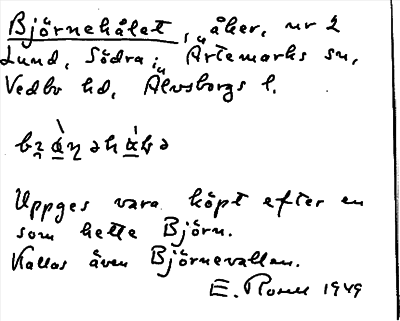 Björnehålet, åker, nr 2
Lund, Södra, i Ärtemarks sn,
Vedbo hd, Älvsborgs l.
Uppges vara köpt efter en
som hette Björn.
Kallas även Björnevallen.
E. Rosell 1949